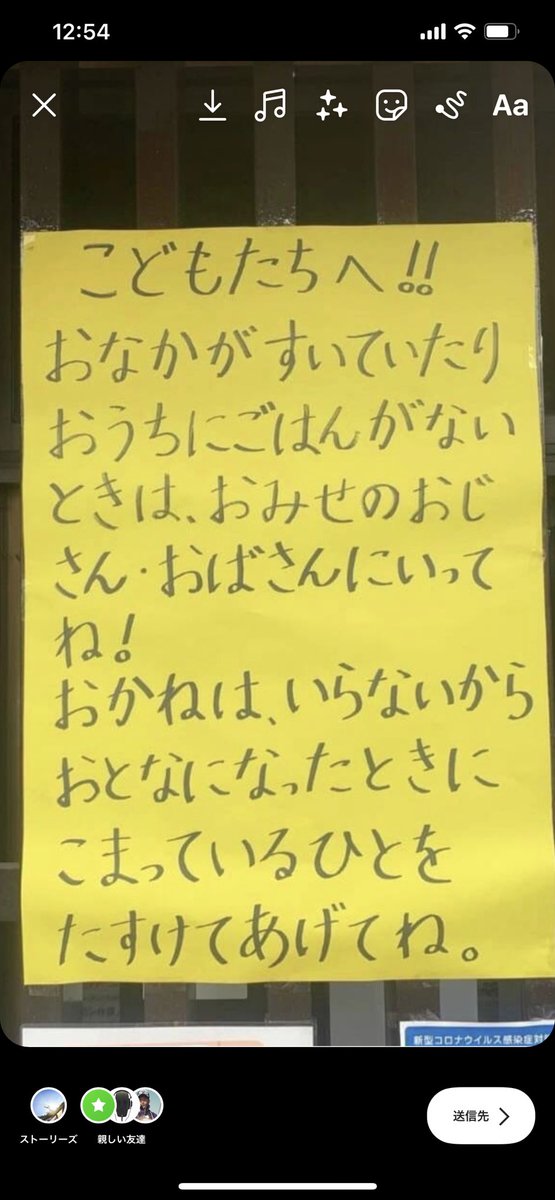 12:54
Aa
こどもたちへ!!
おなかがすいていたり
おうちにごはんがない
ときは、おみせのおじ
さん・おばさんにいって
ね!
おかねは、いらないから
おとなになったときに
こまっているひとを
たすけてあげてね。
新型コロナウイルス感染症対
ストーリーズ
親しい友達
送信先